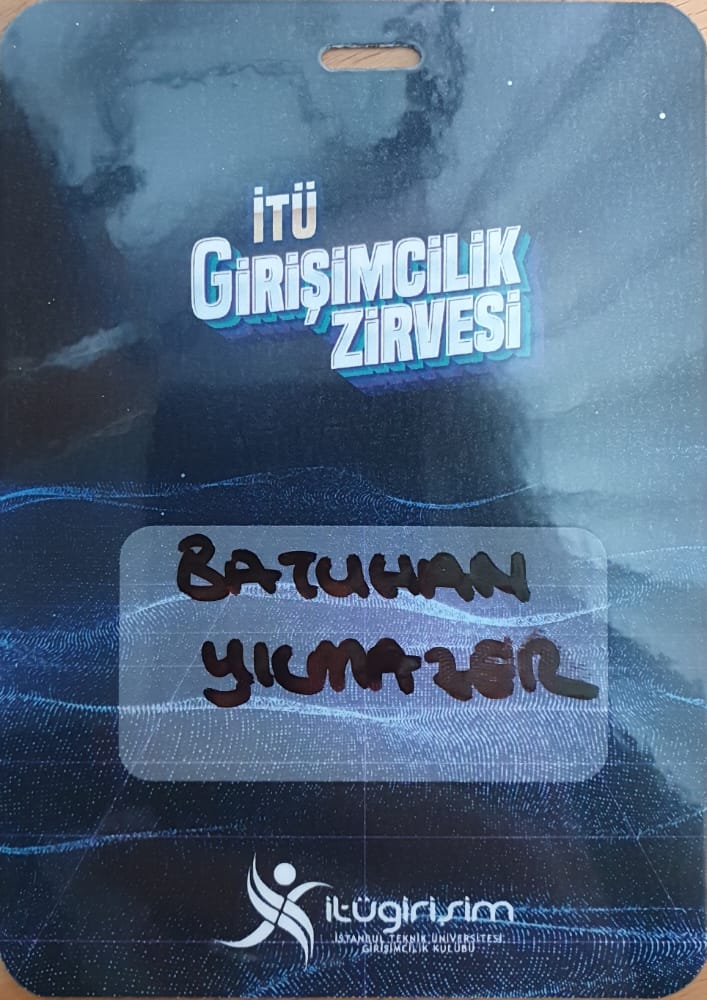 İTÜ
GİRİŞİMCİLİK
ZİRVESİ
BATUHAN
YILMAZER
itügirişim
İSTANBUL TEKNİK ÜNİVERSİTESİ
GİRİŞİMCİLİK KULÜBÜ